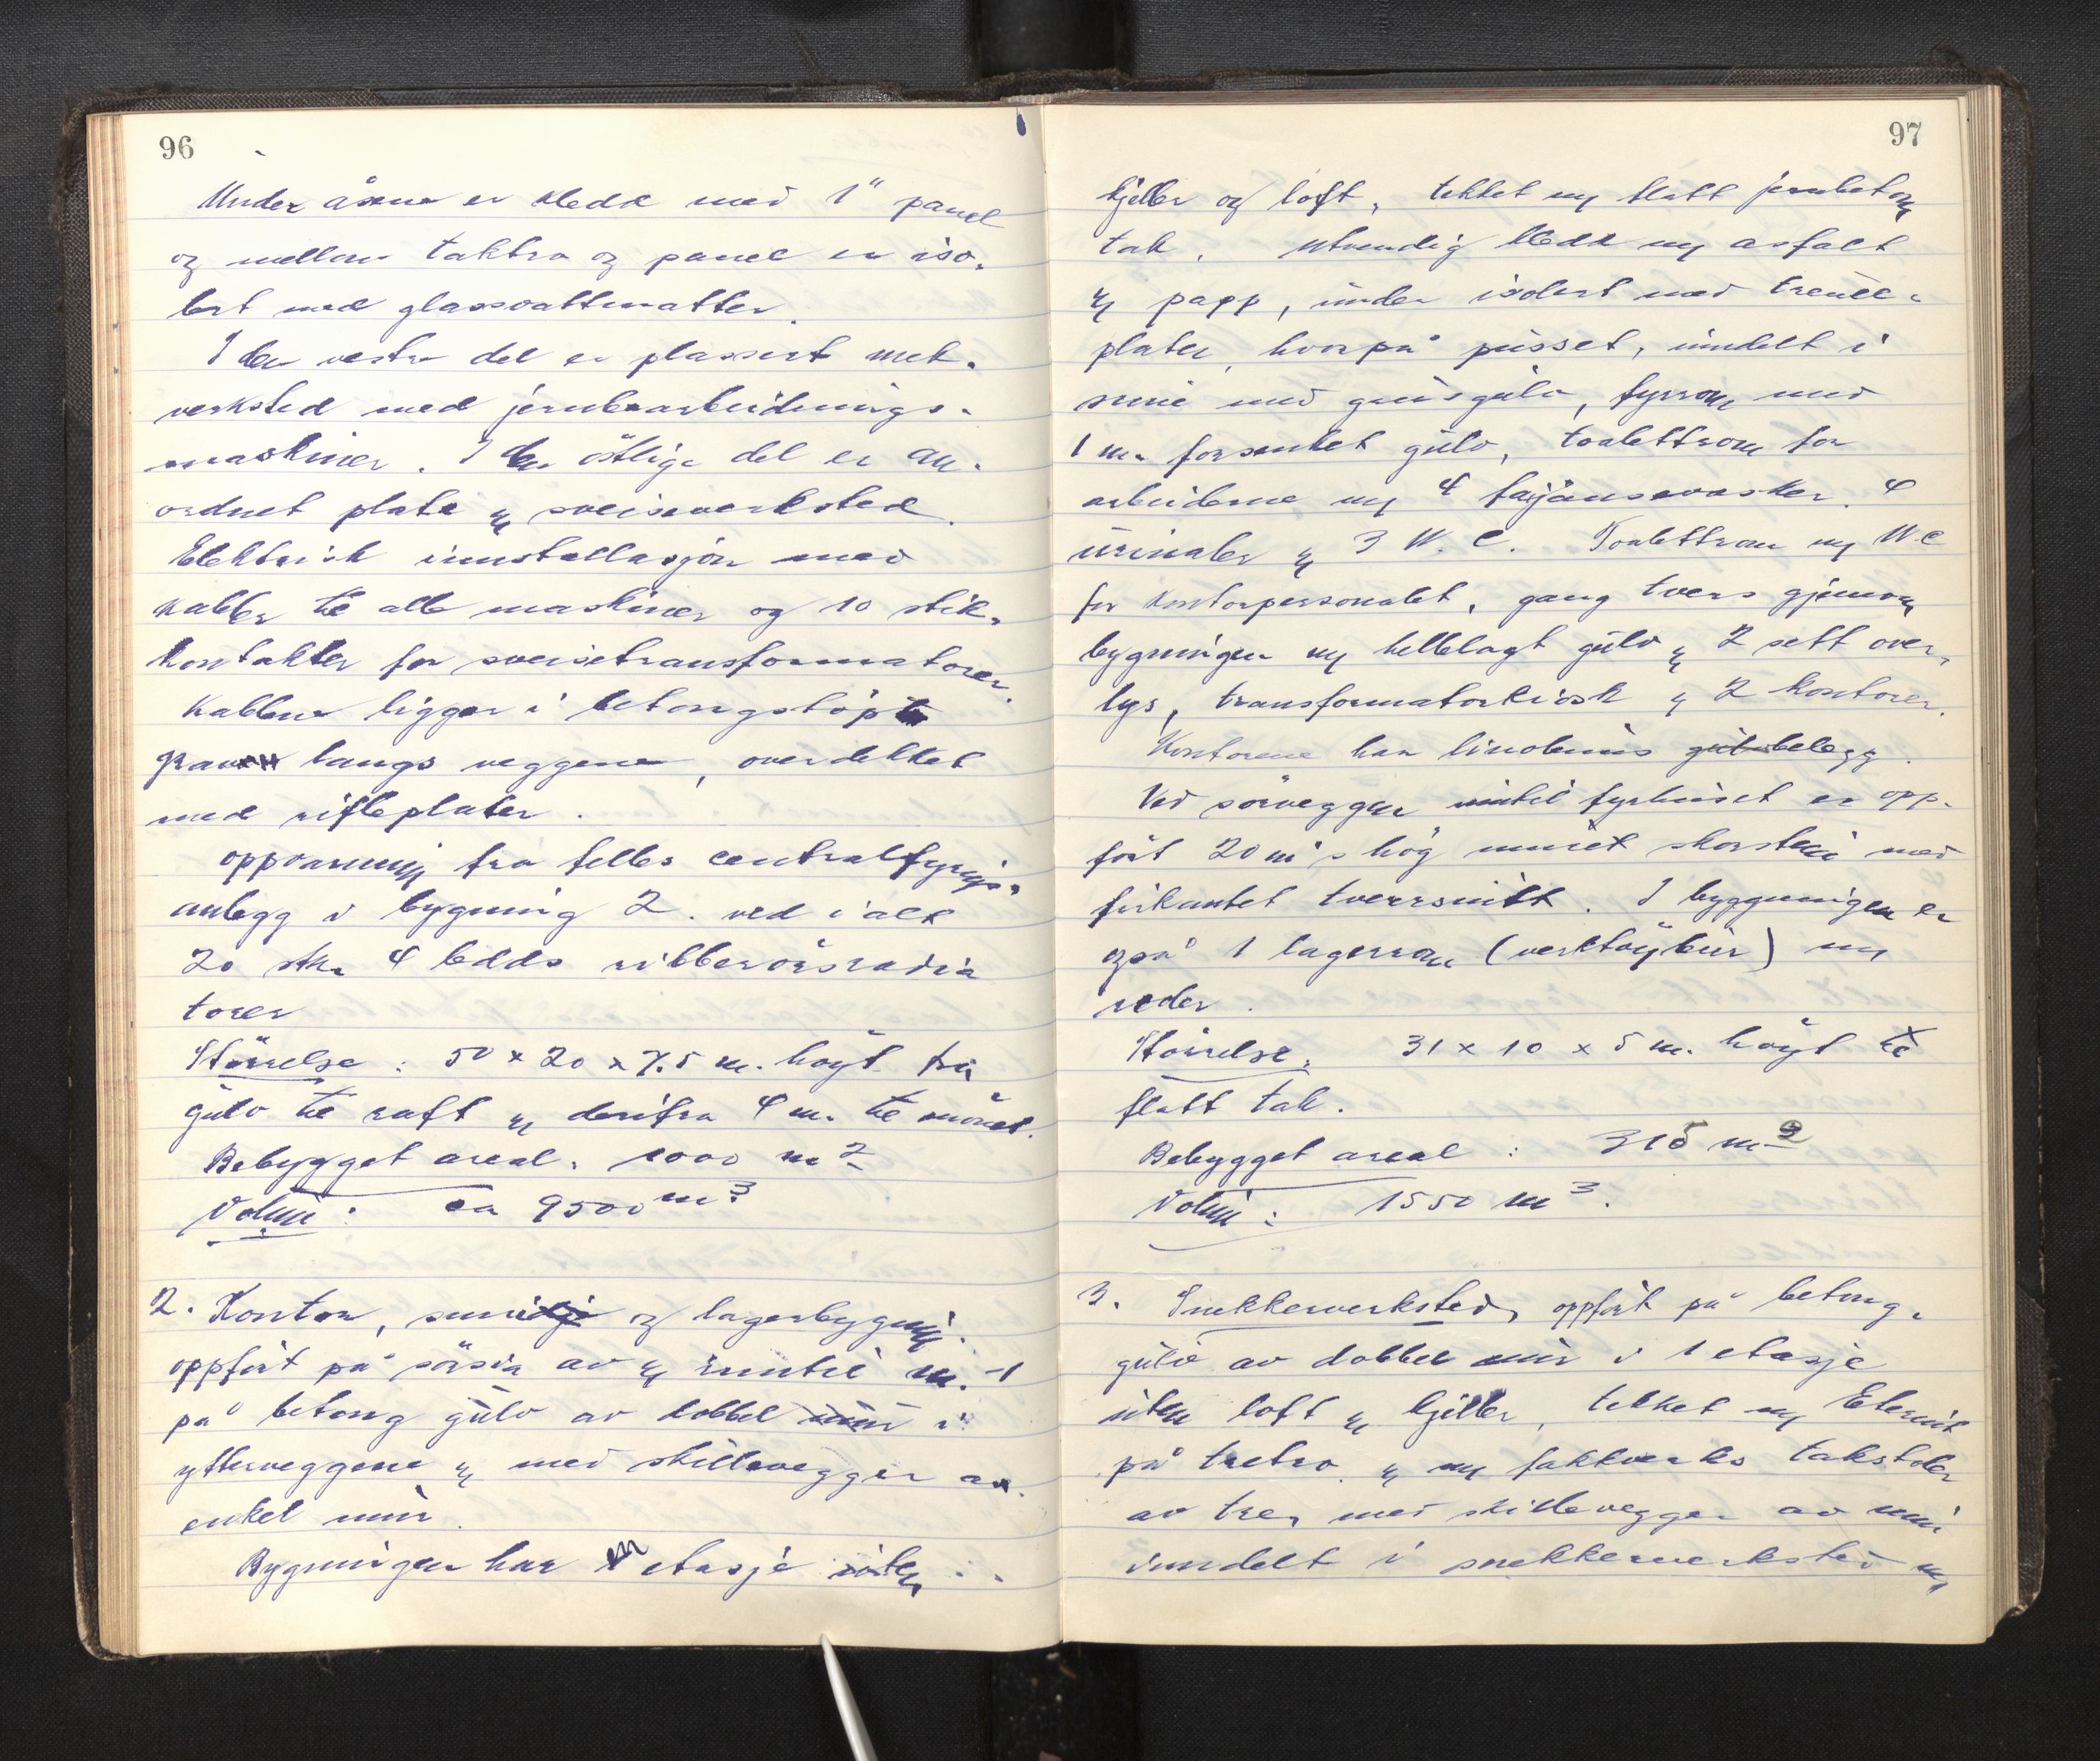 96
Under åsene er kledd med 1" panel
og mellom taktro og panel er iso-
lert med glassvattmatter.
I den vestre del er plassert mek.
verksted med jernbearbeidnings-
maskiner. I den östlige del er an-
ordnet plate og sveiseverksted.
Elektrisk innstallasjon med
kabler til alle maskiner og 10 stik-
kontakter for sveisetransformatorer.
Kablene ligger i betongstöpt
graven langs veggene, overdekket
med rifleplater.
oppvarming fra felles centralfyrings-
anlegg i bygning 2. ved i alt
20 stk. 4 ledds ribberörsradia
torer
Störrelse: 50 x 20 x 7.5 m. höyt fra
gulv til raft og derifra 4 m. til mönet.
Bebygget areal. 1000 m2
Volum: ca 9500 m3
2. Kontor, smidje og lagerbygning.
oppfört på sörsia av og inntil nr. 1
på betong gulv av dobbel mur i
ytterveggene og med skillevegger av
enkel mur.
Bygningen har en etasje uten
97
kjeller og loft, tekket m/ flatt jernbetong
tak. Utvendig kledd m/ asfalt
og papp, under isolert med treull-
plater, hvorpå pusset, inndelt i
smie med grusgulv, fyrrom med
1 m. forsenket gulv, toalettrom for
arbeiderne m/ 4 fajansevasker. 4
urinaler og 3 W.C. Toalettrom m/ W.C
for kontorpersonalet, gang tvers gjennom
bygningen m/ hellelagt gulv og 2 sett over-
lys, transformatorkiosk og 2 kontorer.
Kontorene har linoleums gulvbelegg.
Ved sörveggen inntil fyrhuset er opp-
fört 20 m's hög muret skorstein med
firkantet tverrsnitt. I byggningen er
også 1 lagerrom (verktöybur) m/
reoler.
Störrelse. 31 x 10 x 5 m. höyt til
flatt tak.
Bebygget areal: 315 m2
Volum: 1550 m3.
3. Snekkerverksted, oppfört på betong-
gulv av dobbel mur i 1 etasje
uten loft og kjeller, tekket m/ Eternit
på tretro og m/ fakkverks takstoler
av tre, med skillevegger av mur
inndelt i snekkerverksted m/